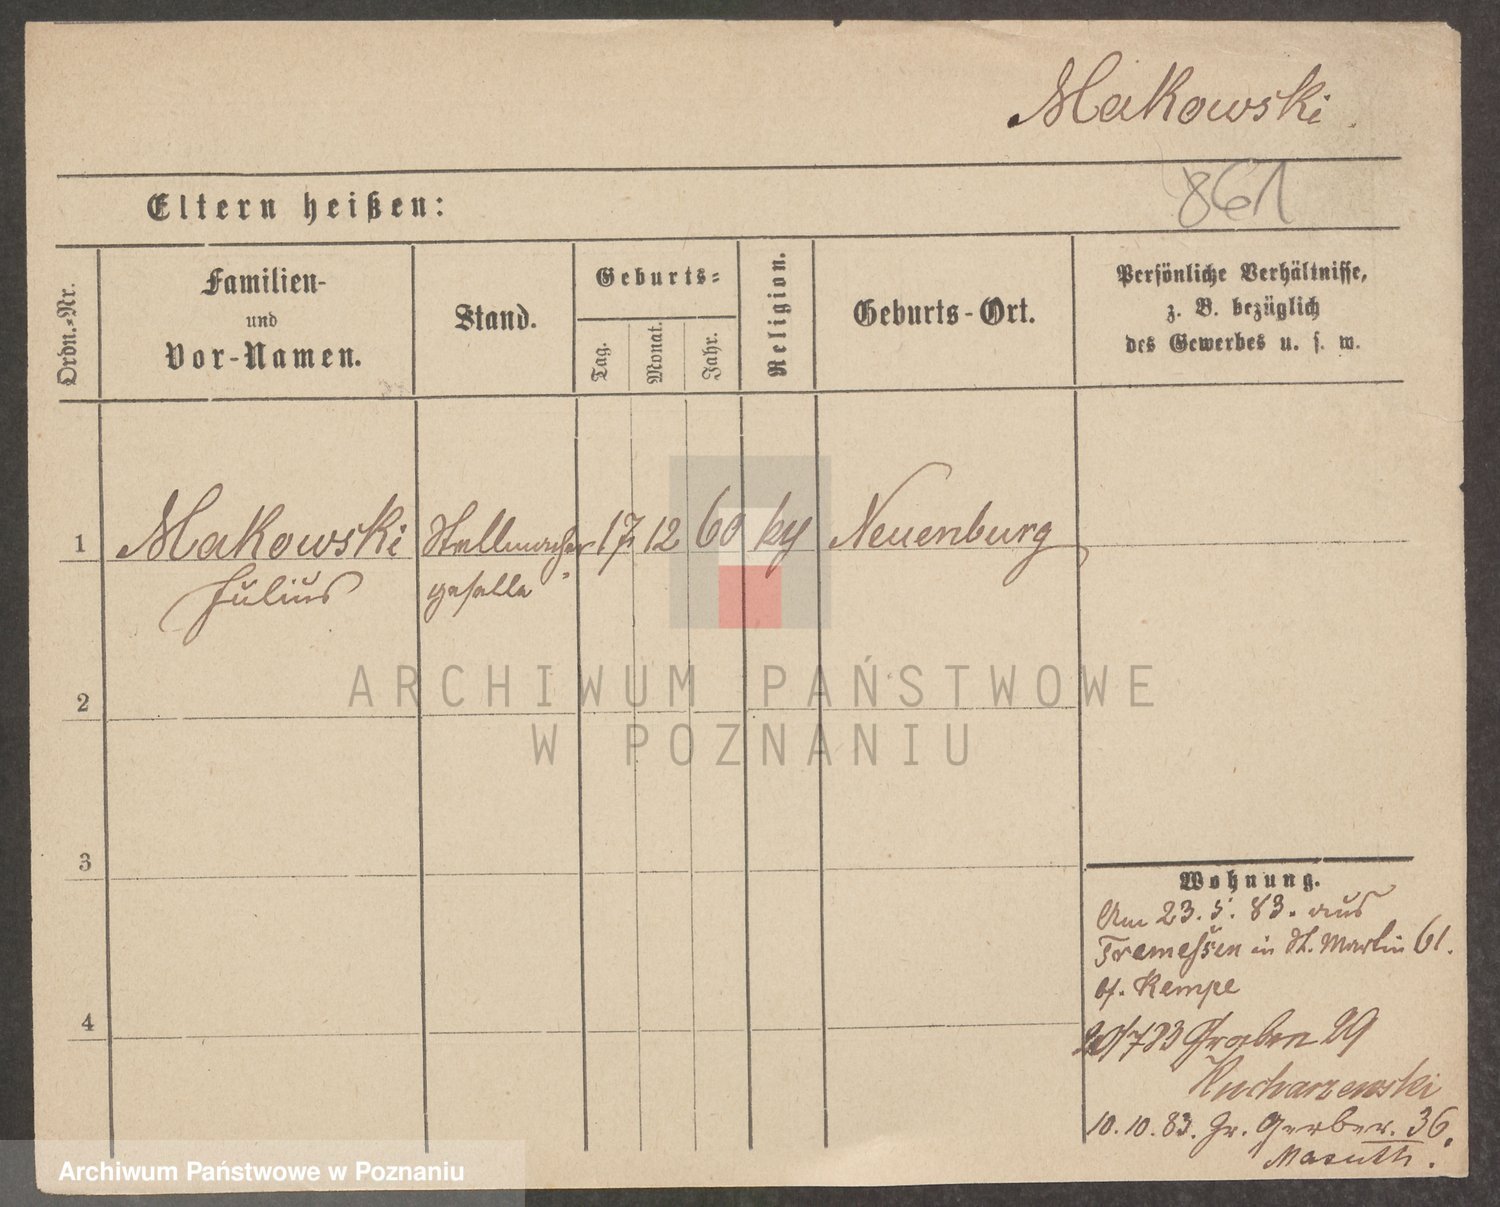 Makowski
861
Eltern heißen:
Ordn.-Nr.
Familien-
und
Vor-Namen.
Stand.
Geburts-
Tag.
Monat.
Jahr.
Religion.
Geburts-Ort.
Persönliche Verhältnisse,
z. B. bezüglich
des Gewerbes u. s. w.
1 Makowski Stellmacher 17 12 60 Neuenburg
Julius geselle
2
3
4
Wohnung.
Am 23. 5. 83. aus
Tremessen in St. Martin 61.
Kempe
20/7 83 Graben 29
Kucharzewski
10. 10. 83. Gr. Gerber. 36.
Masuth.
ARCHIWUM PAŃSTWOWE
W POZNANIU
Archiwum Państwowe w Poznaniu